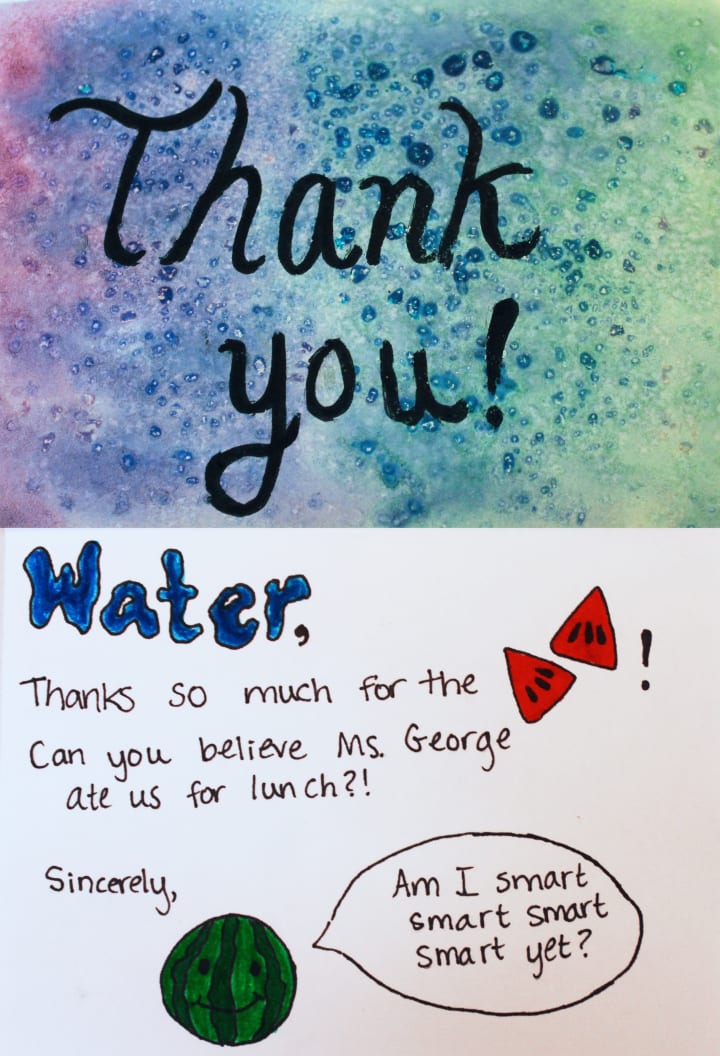 Thank
you!
Water,
Thanks so much for the !
Can you believe Ms. George
ate us for lunch?!
Sincerely,
Am I smart
smart smart
smart yet?